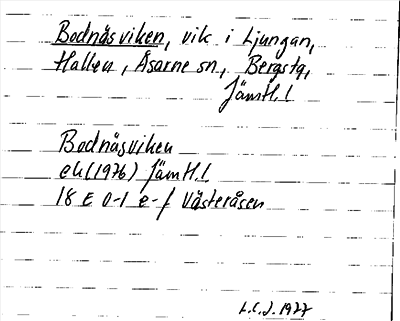 Bodnäsviken, vik i Ljungan,
Hallen, Åsarne sn, Bergstg,
Jämtl. l
Bodnäsviken
ek (1976) Jämtl. l.
18 E 0-1 e-f Västeråsen
L.C.J. 1977